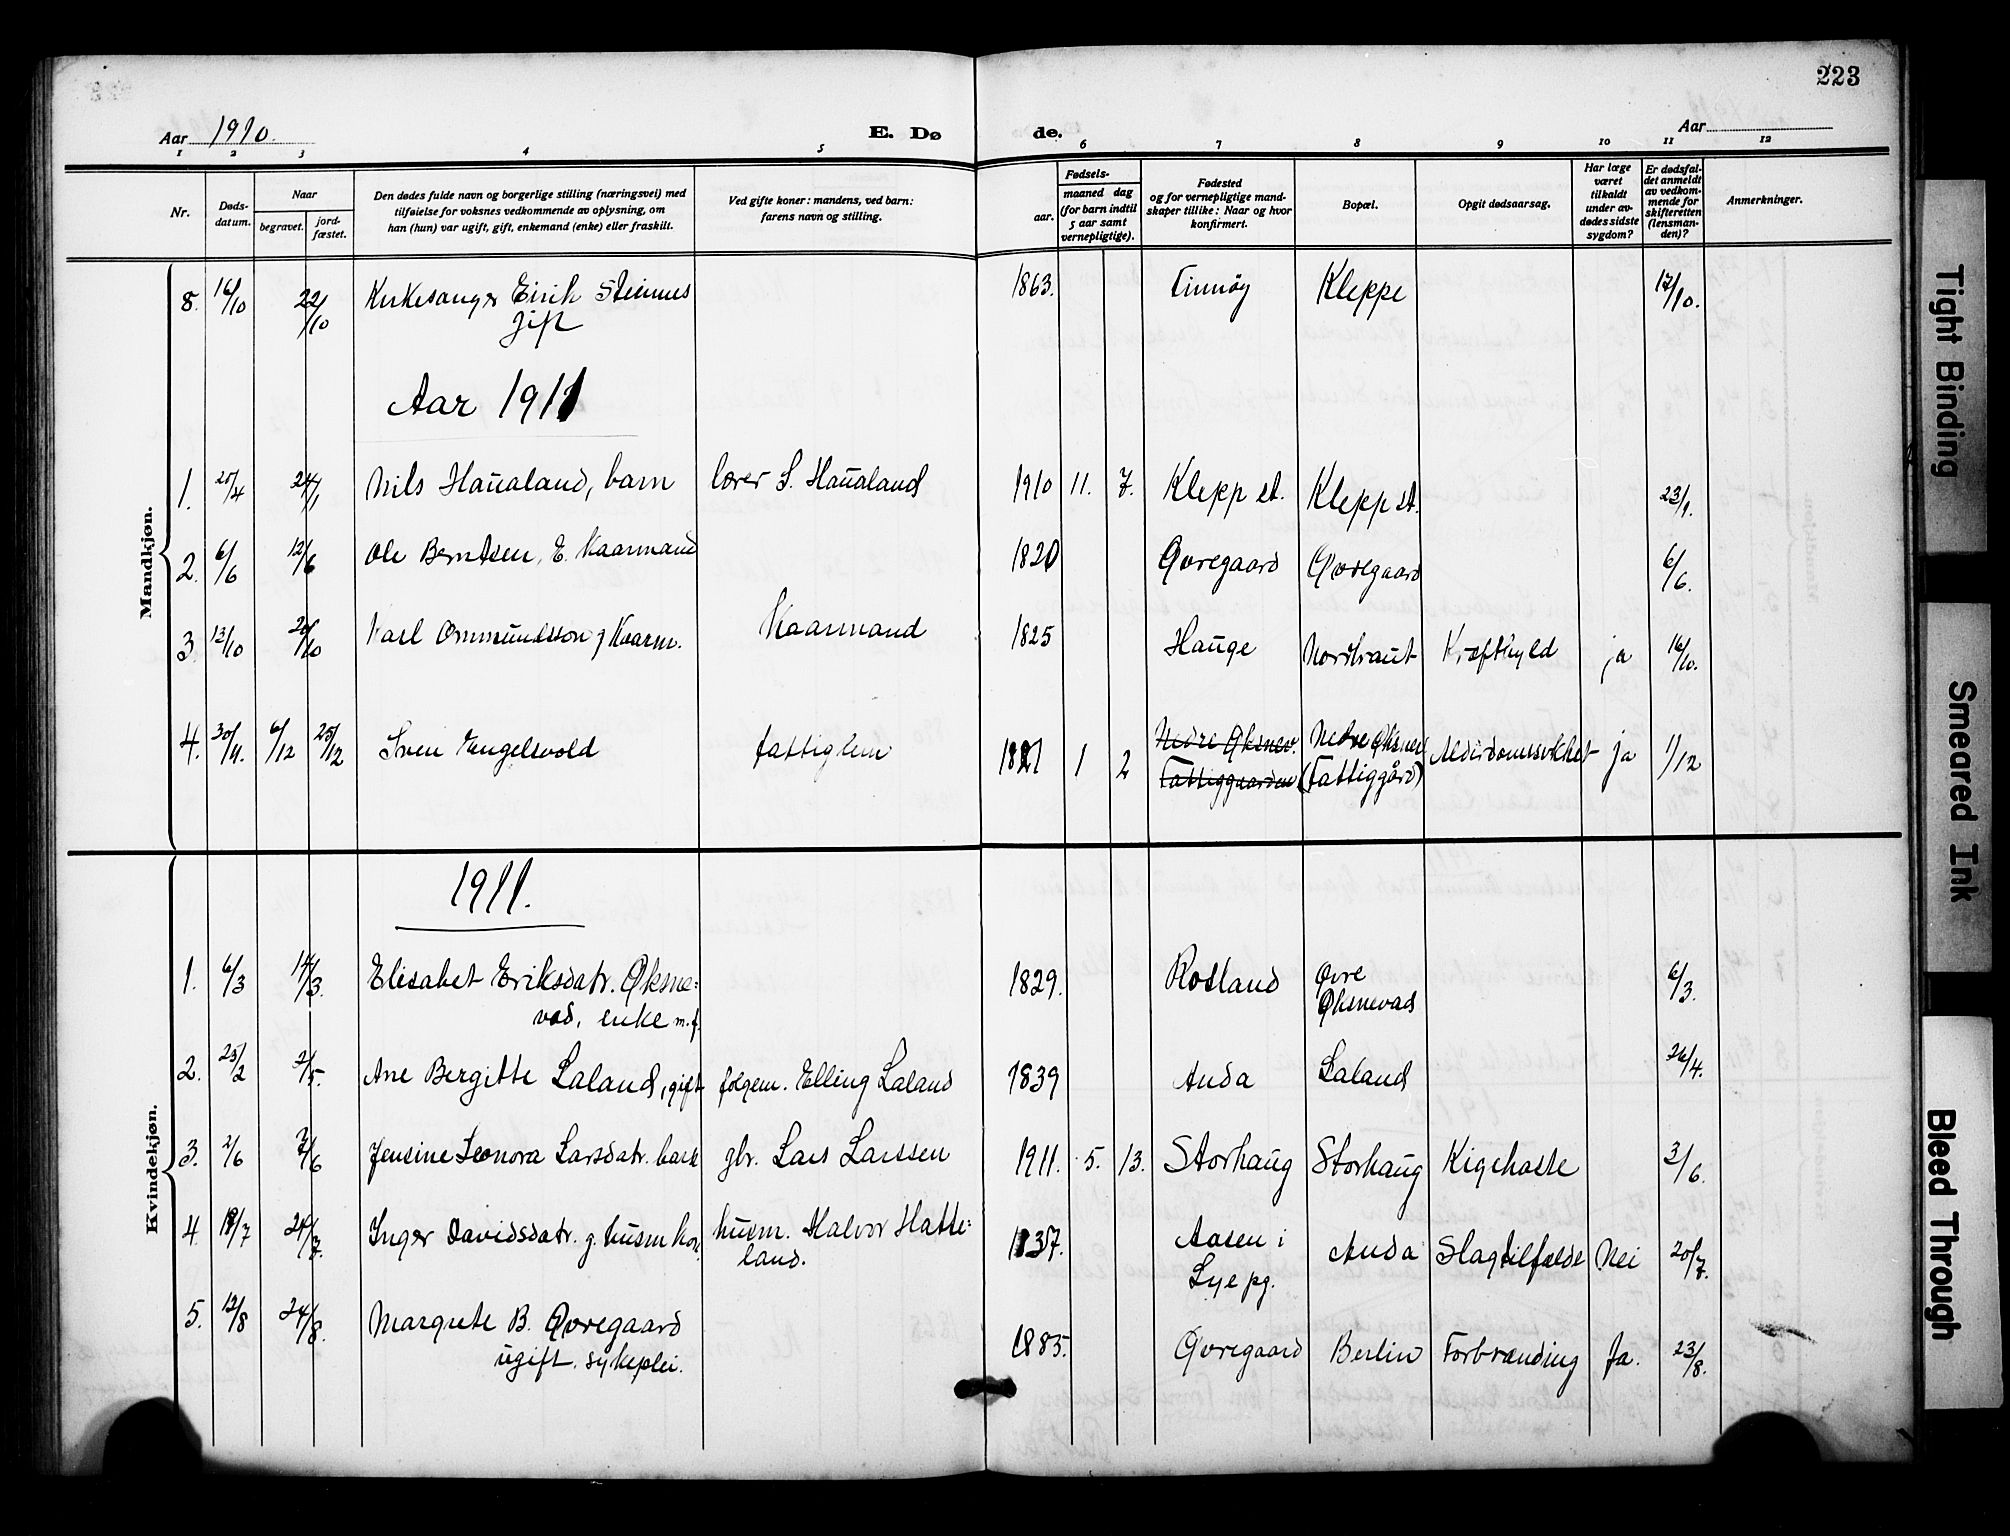 223
Aar 1910.
E. Dø de.
Aar
1 2 3 4 5 6 7 8 9 10 11 12
Nr.
Døds-datum.
Naar
begravet.
jord-fæstet.
Den dødes fulde navn og borgerlige stilling (næringsvei) med
tilføielse for voksnes vedkommende av oplysning, om
han (hun) var ugift, gift, enkemand (enke) eller fraskilt.
Ved gifte koner: mandens, ved barn:
farens navn og stilling.
Fødsels-
aar.
maaned dag
(for barn indtil
5 aar samt
vernepligtige).
Fødested
og for vernepligtige mand-
skaper tillike: Naar og hvor
konfirmert.
Bopæl.
Opgit dødsaarsag.
Har læge
været
tilkaldt
under av-
dødes sidste
sygdom?
Er dødsfal-
det anmeldt
av vedkom-
mende for
skifteretten
(lensman-
den)?
Anmerkninger.
Mandkjøn.
8. 16/10 22/10 Kirkesanger Eirik Steinnes 1863. Finnøy Kleppe 17/10.
gift
Aar 1911
1. 24/1 Nils Haualand, barn lærer S. Haualand 1910 11. 7. Klepp st. Klepp st. 23/1.
2. 6/6 12/6 Ole Berntsen, E. Kaarmand 1820 Øvregaard Øvregaard 6/6.
3. 13/10 20/10 Karl Ommundsson g Kaarm. Kaarmand 1825 Hauge Nordbraut Kræftbyld ja 16/10.
4. 30/11. 6/12 25/12 Sven Engelsvold fattiglem 1821 1 2 Nedre Øksnev. Nedre Øksnev. Alderdomssvækhet ja 1/12
Fattiggaarden (Fattiggård)
Kvindekjøn.
1911.
1. 6/3 14/3. Elisabet Eriksdatr. Øksne= 1829. Rosland Øvre 6/3.
vad, enke m.f. Øksnevad
2. 25/2 2/5. Ane Bergitte Laland, gift følgem. Elling Laland 1839 Anda Laland 26/4.
3. 2/6 7/6 Jensine Leonora Larsdatr. barn gbr. Lars Larssen 1911. 5. 13. Storhaug Storhaug Kighoste 3/6.
4. 19/7 24/7. Inger Davidsdatr. g. husm kon. husm. Halvor Hatte= 1837. Aasen i Anda Slagtilfælde Nei 20/7.
land. Lye pg.
5. 12/8 24/8. Margrete B. Øvregaard 1885. Øvregaard Berlin Forbrænding Ja. 23/8.
ugift. sykeplei.
Tight Binding
Smeared Ink
Bleed Through